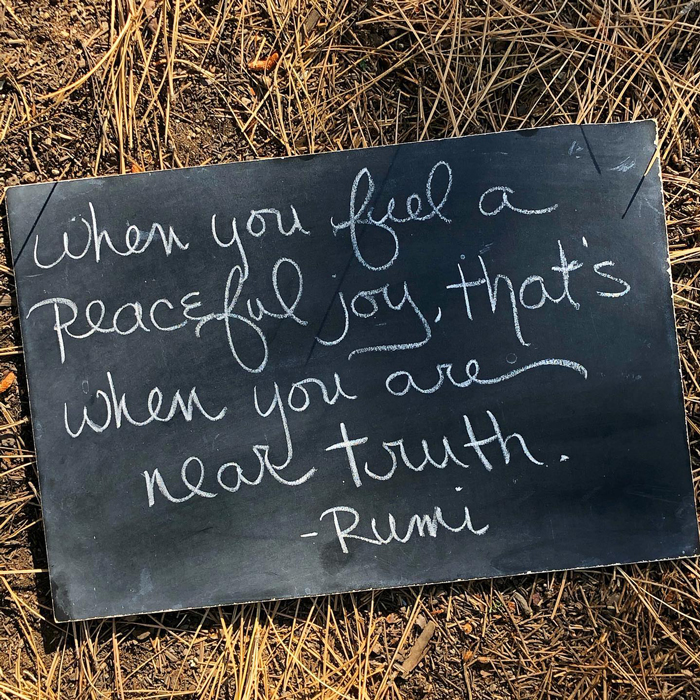 when you feel a
peaceful joy, that's
when you are
near truth.
-Rumi